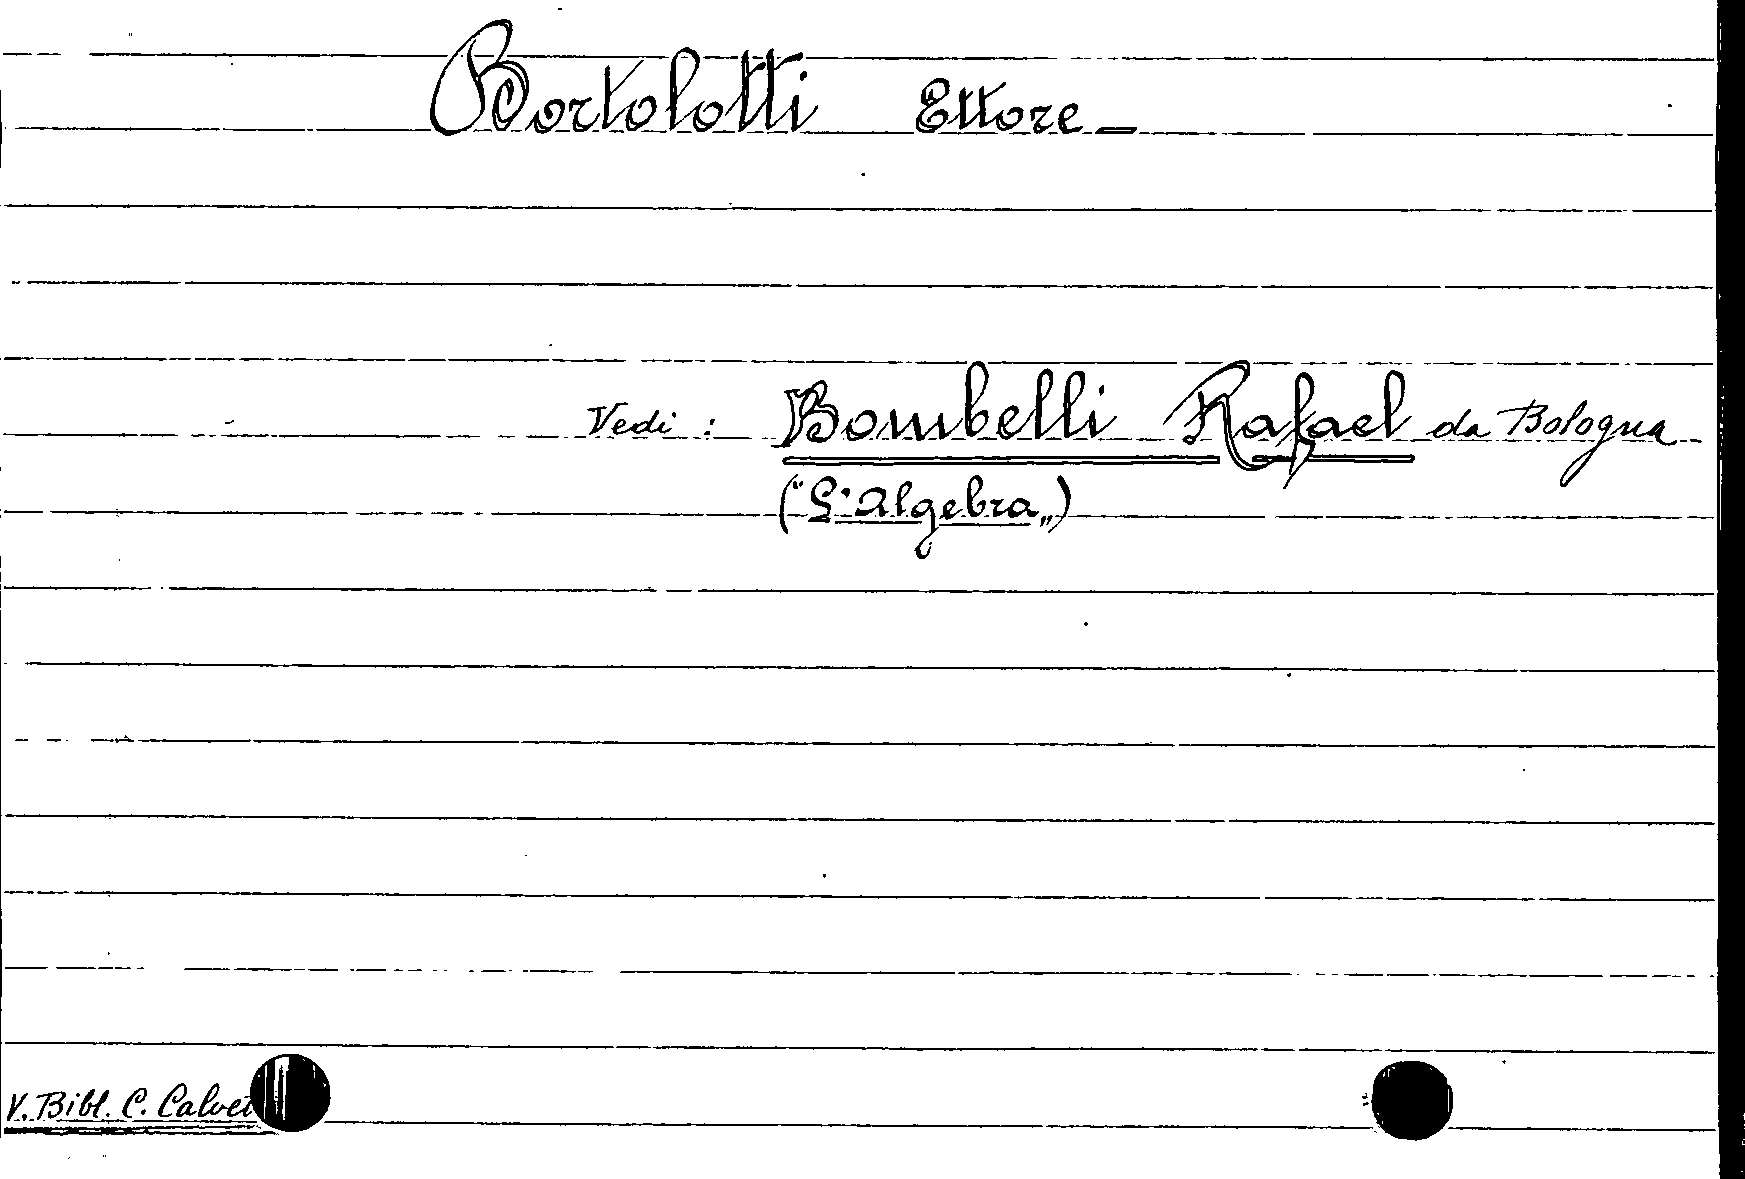 Bortolotti Ettore –
Vedi : Bombelli Rafael da Bologna
("L'Algebra")
V. Bibl. C. Calvet